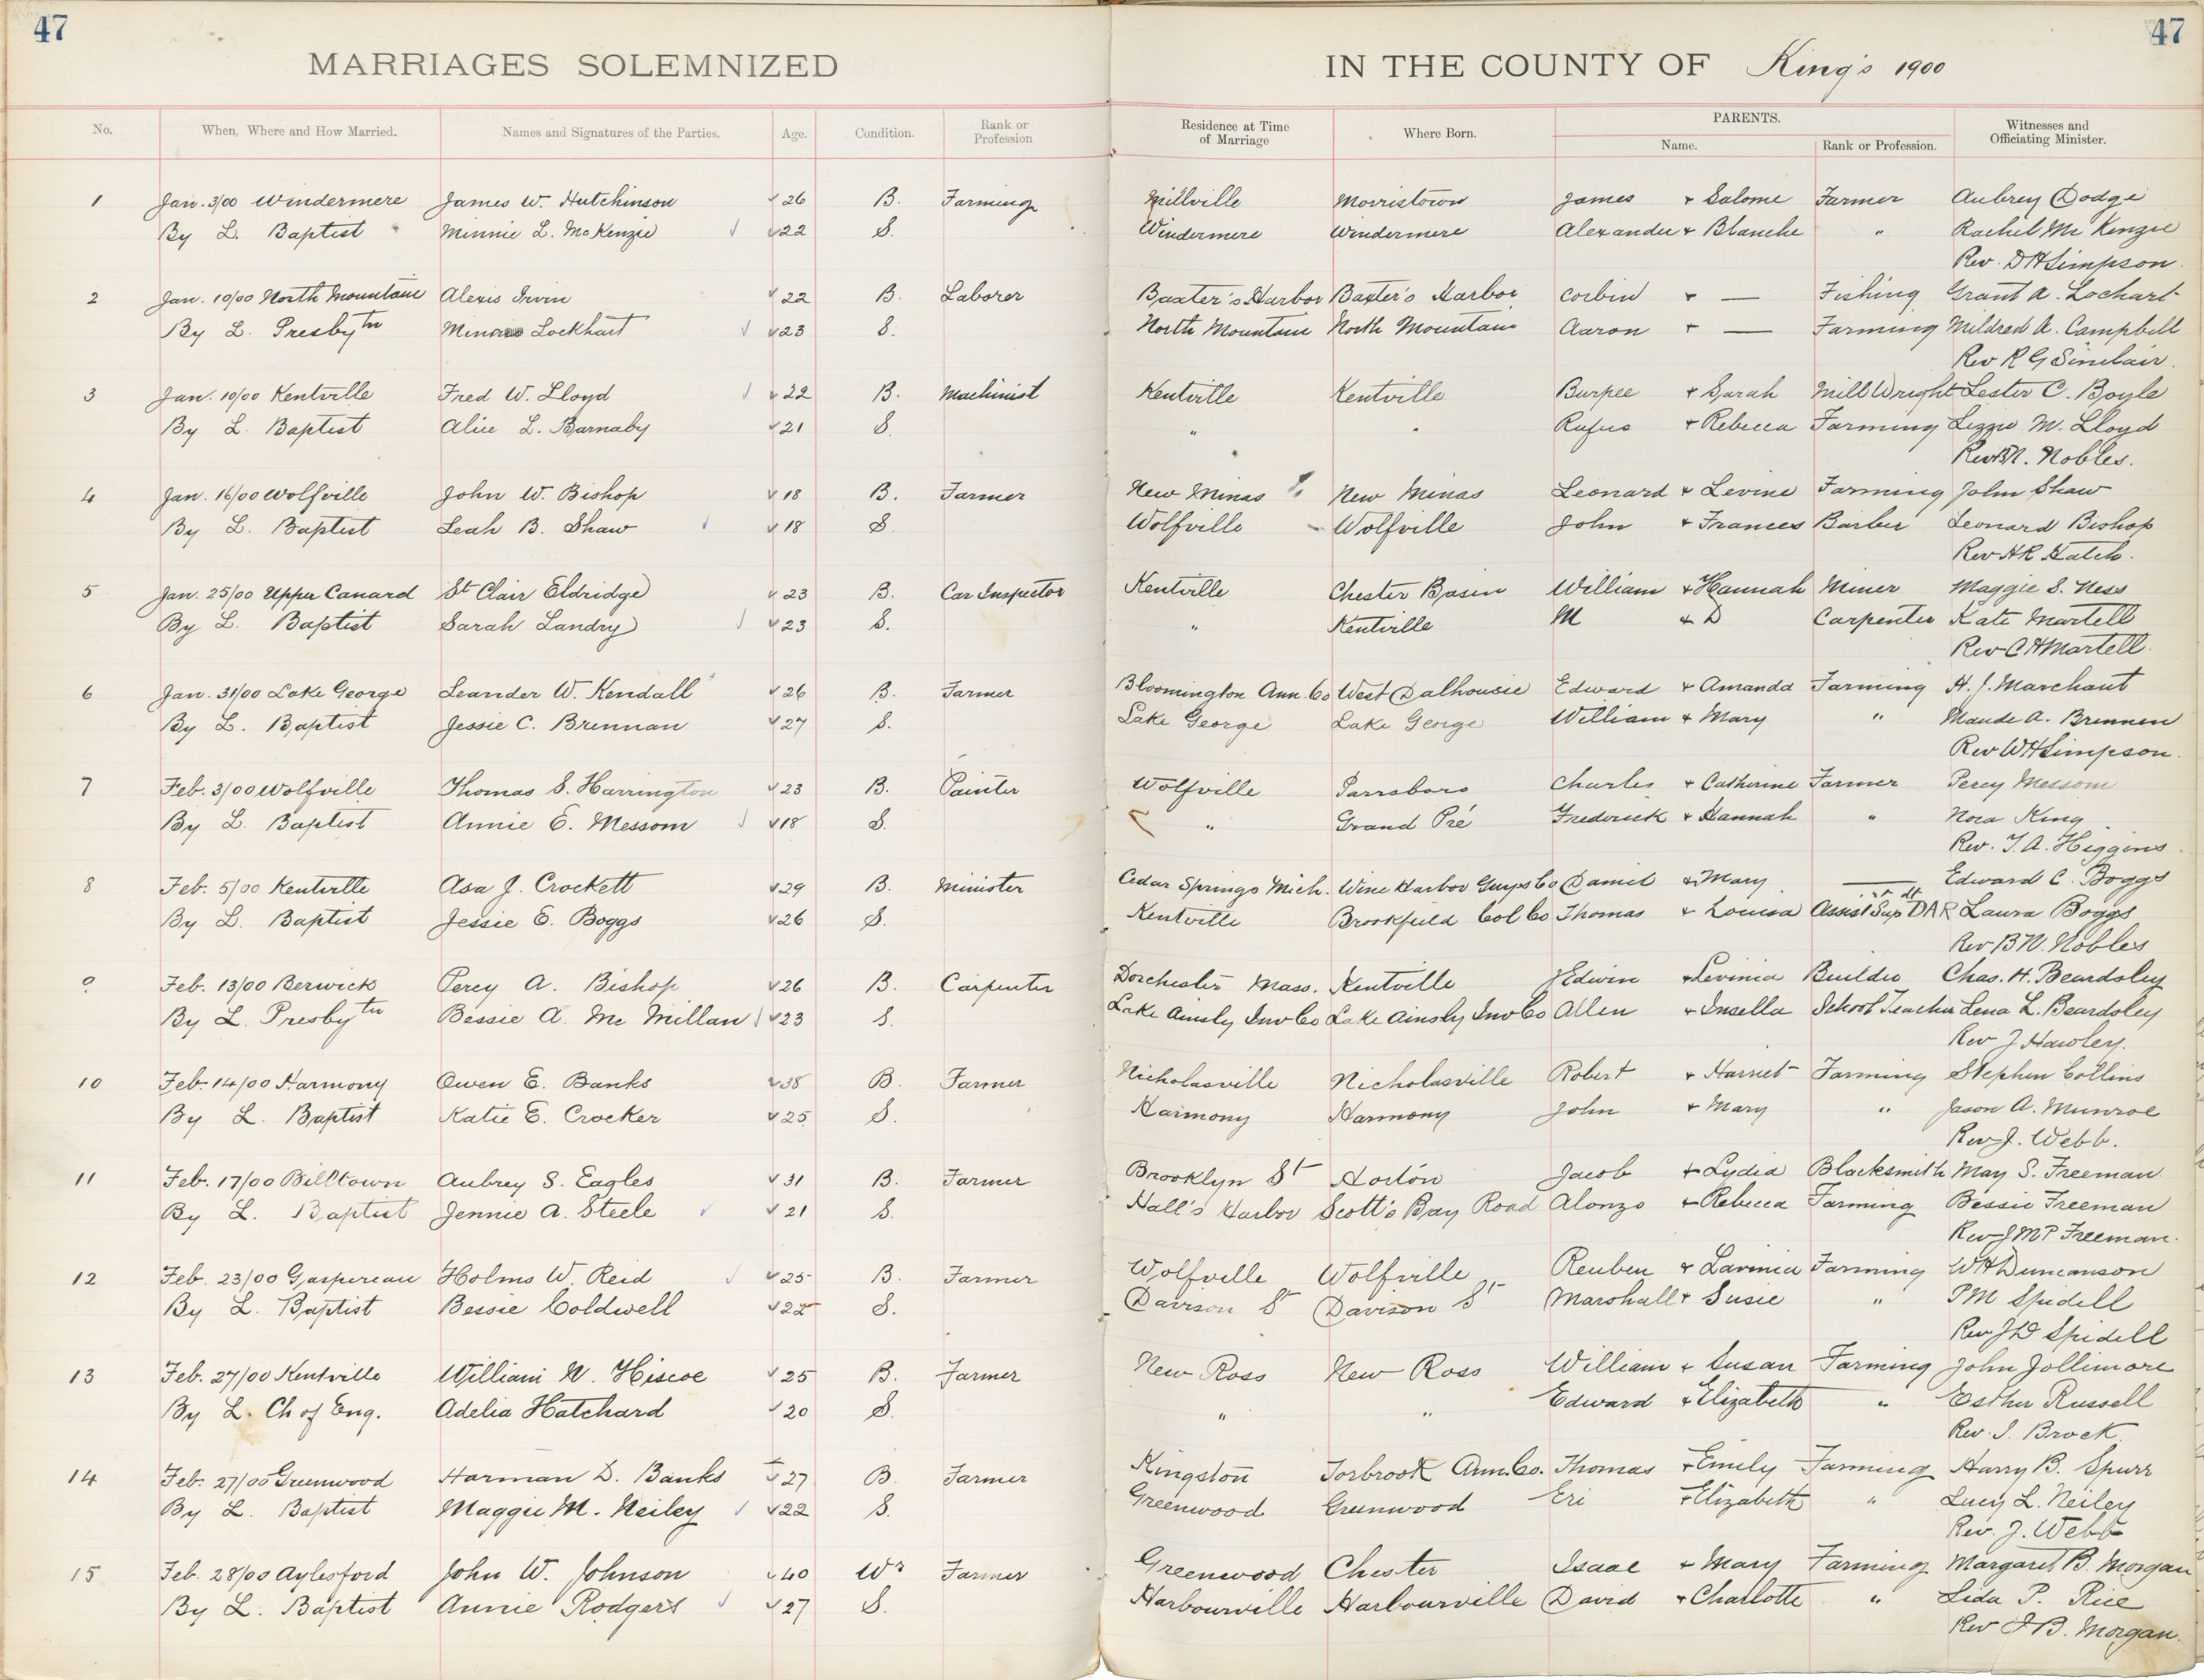 47 47
MARRIAGES SOLEMNIZED IN THE COUNTY OF King's 1900
No. When, Where and How Married. Names and Signatures of the Parties. Age. Condition. Rank or Profession Residence at Time of Marriage Where Born. PARENTS. Name. Rank or Profession. Witnesses and Officiating Minister.
1 Jan. 3/00 Windermere James W. Hutchinson 26 B. Farming Millville Morristown James + Salome Farmer Aubrey Dodge
By L. Baptist Minnie L. McKenzie 22 S. Windermere Windermere Alexander + Blanche " Rachel McKenzie
Rev. D H Simpson.
2 Jan. 10/00 North Mountain Alexis Irvin 22 B. Laborer Baxter's Harbor Baxter's Harbor Corbin + — Fishing Grant A. Lochart
By L. Presbytn Lockhart 23 S. North Mountain North Mountain Aaron + — Farming Mildred A. Campbell
Rev R G Sinclair.
3 Jan. 10/00 Kentville Fred W. Lloyd 22 B. Machinist Kentville Kentville Burpee + Sarah Mill Wright Lester C. Boyle
By L. Baptist Alice L. Barnaby 21 S. " " Rufus + Rebecca Farming Lizzie M. Lloyd
Rev B N. Nobles.
4 Jan. 16/00 Wolfville John W. Bishop 18 B. Farmer New Minas New Minas Leonard + Levine Farming John Shaw
By L. Baptist Leah B. Shaw 18 S. Wolfville Wolfville John + Frances Barber Leonard Bishop
Rev H R Hatch.
5 Jan. 25/00 Upper Canard St Clair Eldridge 23 B. Car Inspector Kentville Chester Basin William + Hannah Miner Maggie S. Ness
By L. Baptist Sarah Landry 23 S. " Kentville M + D Carpenter Kate Martell
Rev C H Martell.
6 Jan. 31/00 Lake George Leander W. Kendall 26 B. Farmer Bloomington Ann. Co West Dalhousie Edward + Amanda Farming H. J. Marchant
By L. Baptist Jessie C. Brennan 27 S. Lake George Lake George William + Mary " Maude A. Brennen
Rev W H Simpson.
7 Feb. 3/00 Wolfville Thomas S. Harrington 23 B. Painter Wolfville Parrsboro Charles + Catherine Farmer Percy Messom
By L. Baptist Annie E. Messom 18 S. " Grand Pré Frederick + Hannah " Nora King.
Rev. T. A. Higgins.
8 Feb. 5/00 Kentville Asa J. Crockett 29 B. Minister Cedar Springs Mich. Wine Harbor Guys Co Daniel + Mary — Edward C. Boggs
By L. Baptist Jessie E. Boggs 26 S. Kentville Brookfield Col Co Thomas + Louisa Assist Supdt DAR Laura Boggs
Rev B N. Nobles
9 Feb. 13/00 Berwick Percy A. Bishop 26 B. Carpenter Dorchester Mass. Kentville Edwin + Levinia Builder Chas. H. Beardsley
By L. Presbytn Bessie A. McMillan 23 S. Lake Ainsly Inv Co Lake Ainsly Inv Co Allen + Insella School Teacher Lena L. Beardsley
Rev J Hawley.
10 Feb. 14/00 Harmony Owen E. Banks 38 B. Farmer Nicholasville Nicholasville Robert + Harriet Farming Stephen Collins
By L. Baptist Katie E. Crocker 25 S. Harmony Harmony John + Mary " Jason A. Munroe
Rev J. Webb.
11 Feb. 17/00 Billtown Aubrey S. Eagles 31 B. Farmer Brooklyn St Horton Jacob + Lydia Blacksmith May S. Freeman.
By L. Baptist Jennie A. Steele 21 S. Hall's Harbor Scott's Bay Road Alonzo + Rebecca Farming Bessie Freeman
Rev J M P Freeman.
12 Feb. 23/00 Gaspereau Holms W. Reid 25 B. Farmer Wolfville Wolfville Reuben + Lavinia Farming W H Duncanson
By L. Baptist Bessie Coldwell 22 S. Davison St Davison St Marshall + Susie " P M Spidell
Rev J D Spidell
13 Feb. 27/00 Kentville William N. Hiscoe 25 B. Farmer New Ross New Ross William + Susan Farming John Jollimore
By L. Ch of Eng. Adelia Hatchard 20 S. " " Edward + Elizabeth " Esther Russell
Rev. I. Brock.
14 Feb. 27/00 Greenwood Harman D. Banks 27 B. Farmer Kingston Torbrook Ann. Co. Thomas + Emily Farming Harry B. Spurr
By L. Baptist Maggie M. Neiley 22 S. Greenwood Greenwood Eri + Elizabeth " Lucy L. Neiley
Rev. J. Webb
15 Feb. 28/00 Aylesford John W. Johnson 40 Wr Farmer Greenwood Chester Isaac + Mary Farming Margaret B. Morgan
By L. Baptist Annie Rodgers 27 S. Harbourville Harbourville David + Charlotte " Lida P. Rice
Rev J B. Morgan.